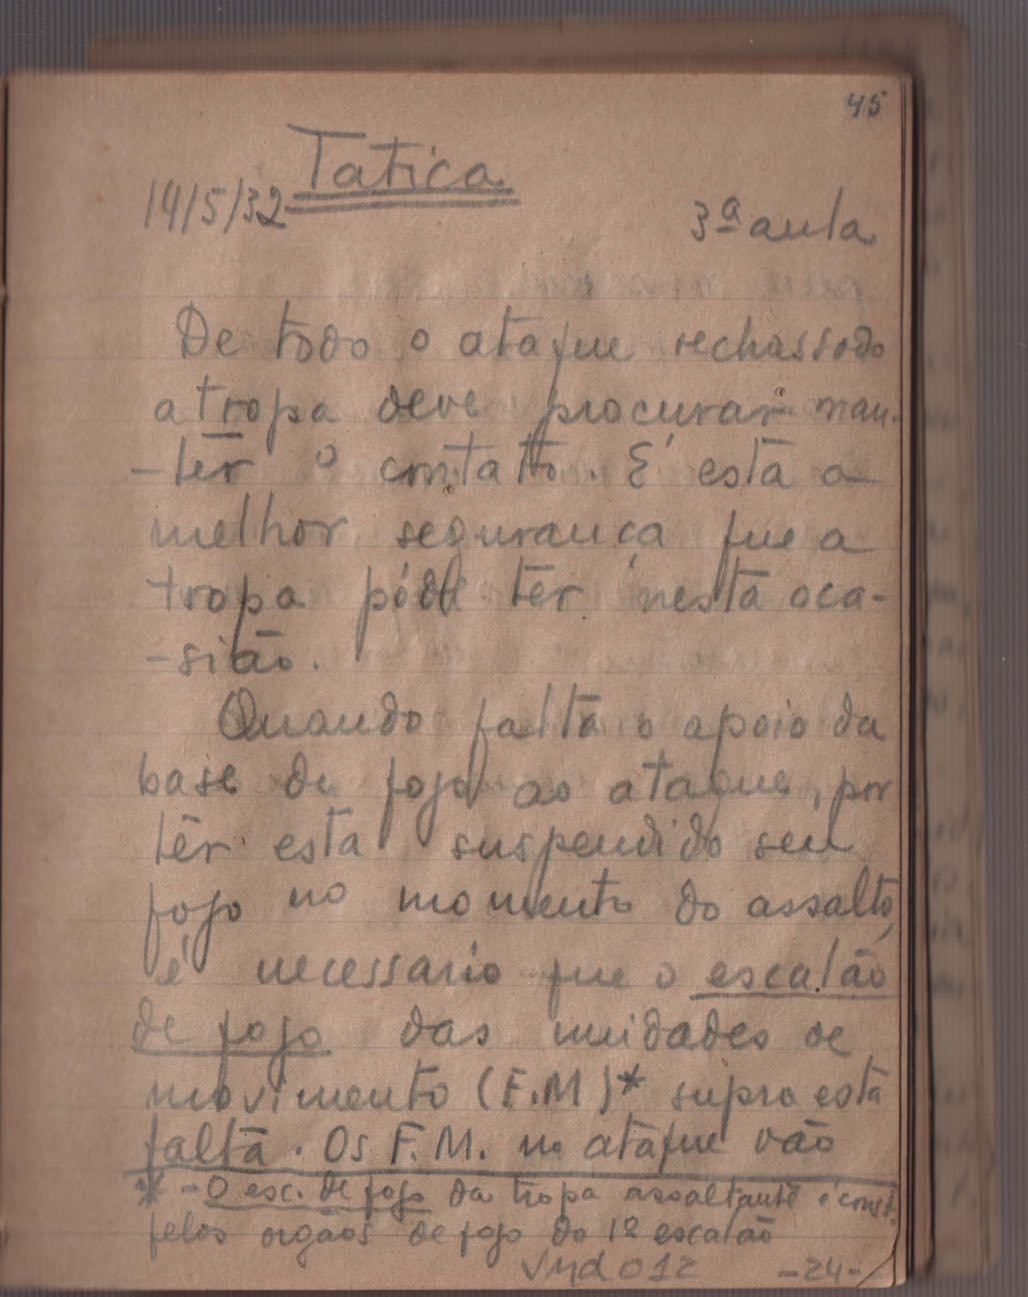 45
Tatica
14/5/32
3ª aula
De todo o ataque rechassado
a tropa deve procurar man-
-têr o contatto. É está a
melhor segurança que a
tropa póde têr nesta oca-
-sião.
Quando falta o apoio da
base de fogo ao ataque, por
têr esta suspendido seu
fogo no momento do assalto,
é necessario que o escalão
de fogo das unidades de
movimento (F.M)* supra esta
falta. Os F.M. no ataque vão
* - O esc. de fogo da tropa assaltante é const.
pelos orgãos de fogo do 1º escalão
-24-